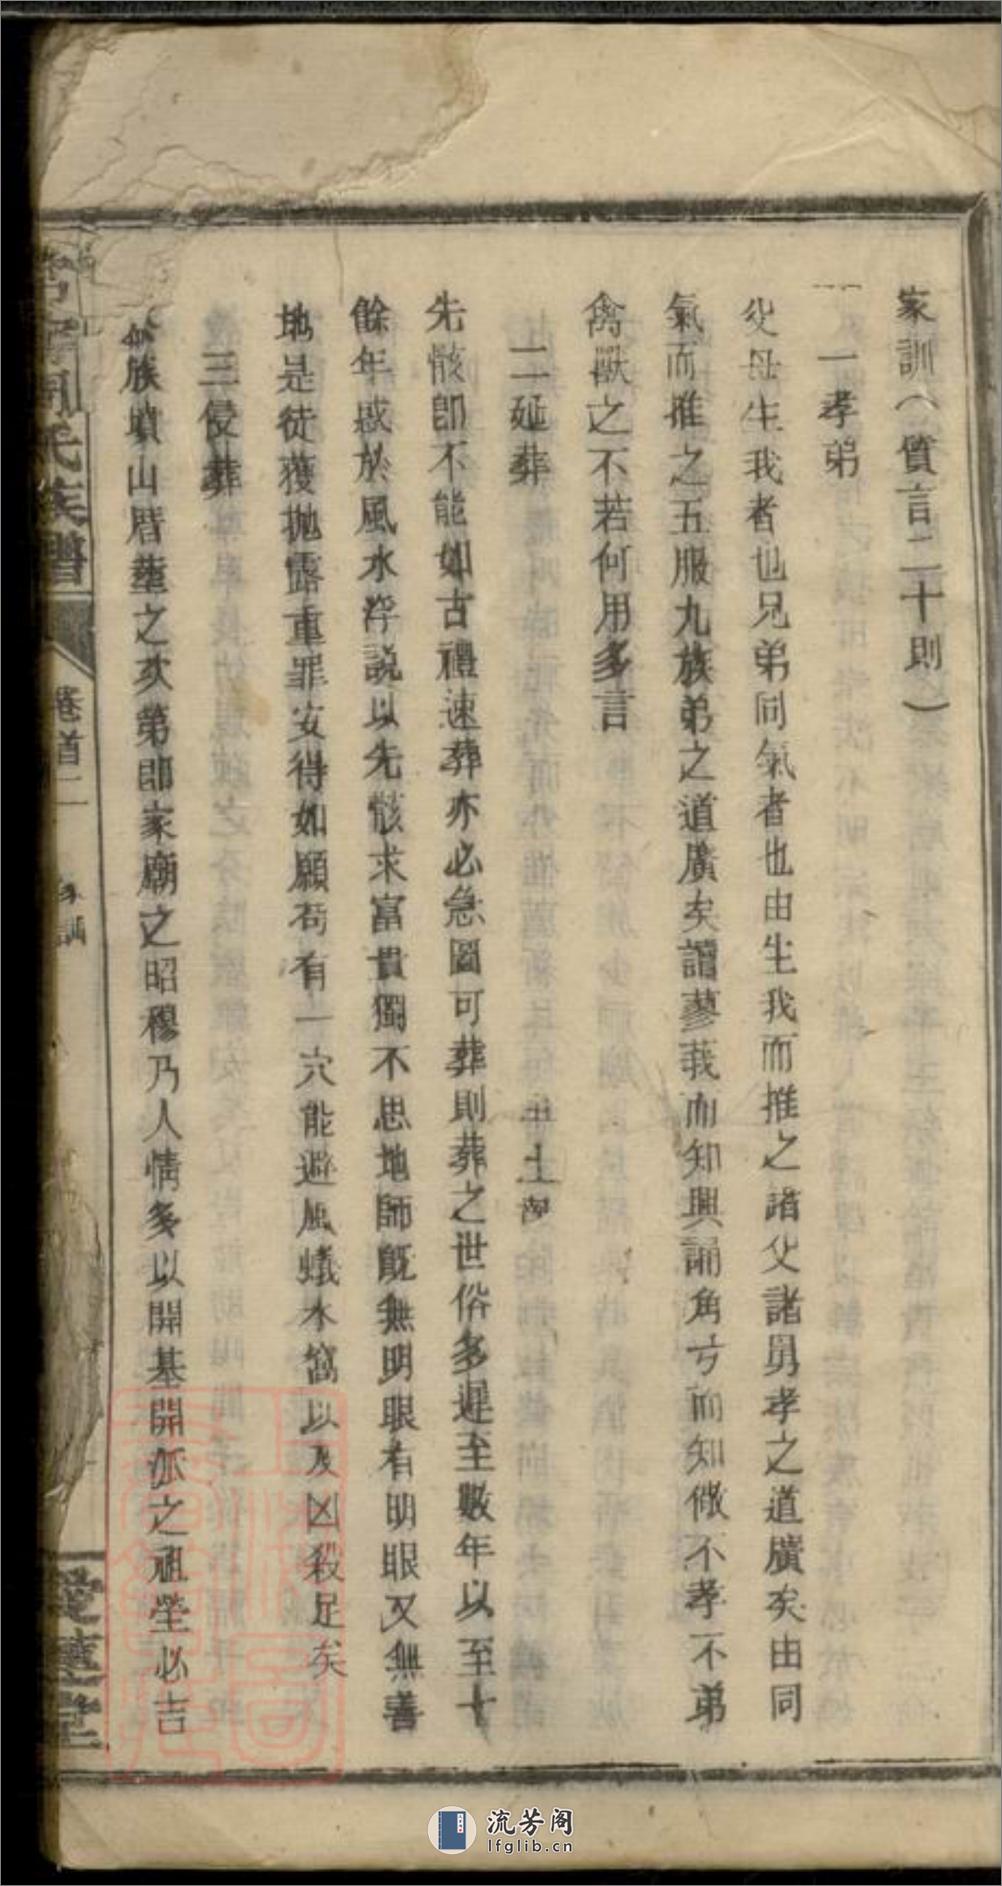 家訓（質言二十則）
一孝弟
父母生我者也兄弟同氣者也由生我而推之諸父諸舅孝之道廣矣由同
氣而推之五服九族弟之道廣矣讀蓼莪而知興誦角弓而知儆不孝不弟
禽獸之不若何用多言
二延葬
先骸卽不能如古禮速葬亦必急圖可葬則葬之世俗多遲至數年以至十
餘年惑於風水浮說以先骸求富貴獨不思地師旣無明眼有明眼又無善
地是徒獲拋露重罪安得如願苟有一穴能避風蟻水窩以及凶殺足矣
三侵葬
族墳山厝塟之次第卽家廟之昭穆乃人情多以開基開派之祖塋必吉
氏族譜
卷首二
家訓
堂
流芳阁
lfglib.cn